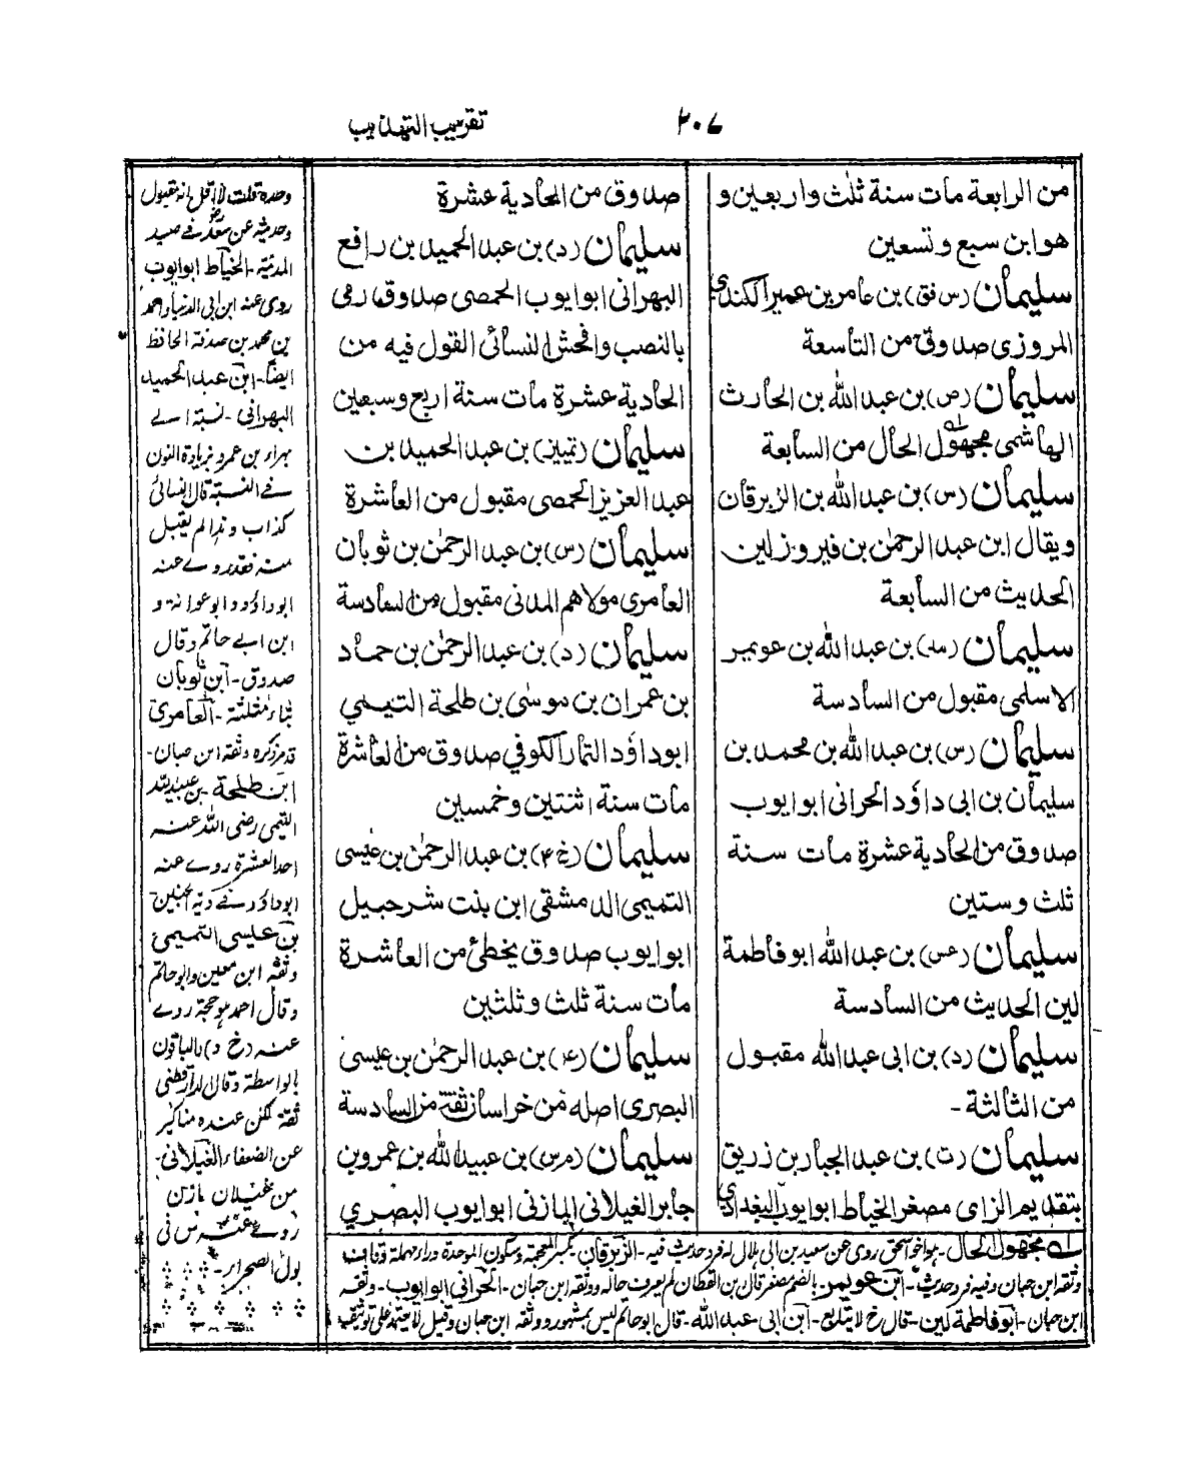 ۲۰۷
تقريب التهذيب
من الرابعة مات سنة ثلث واربعين و
هو ابن سبع وتسعين
سليمان (س فق) بن عامر بن عمير الكندى
المروزى صدوق من التاسعة
سليمان (ص) بن عبد الله بن الحارث
الهاشمى مجهول الحال من السابعة
سليمان (س) بن عبد الله بن الزبرقان
ويقال ابن عبد الرحمن بن فيروز لين
الحديث من السابعة
سليمان (مد) بن عبد الله بن عويمر
الاسلمى مقبول من السادسة
سليمان (س) بن عبد الله بن محمد بن
سليمان بن ابى داؤد الحرانى ابو ايوب
صدوق من الحادية عشرة مات سنة
ثلث وستين
سليمان (عس) بن عبد الله ابو فاطمة
لين الحديث من السادسة
سليمان (د) بن ابى عبد الله مقبول
من الثالثة -
سليمان (ت) بن عبد الجبار بن زريق
بتقديم الزاى مصغر الخياط ابو ايوب البغدادى
صدوق من الحادية عشرة
سليمان (د) بن عبد الحميد بن رافع
البهرانى ابو ايوب الحمصى صدوق رمى
بالنصب وافحش النسائى القول فيه من
الحادية عشرة مات سنة اربع وسبعين
سليمان (تمييز) بن عبد الحميد بن
عبد العزيز الحمصى مقبول من العاشرة
سليمان (س) بن عبد الرحمن بن ثوبان
العامرى مولاهم المدنى مقبول من السادسة
سليمان (د) بن عبد الرحمن بن حماد
بن عمران بن موسى بن طلحة التيمي
ابو داؤد التمار الكوفي صدوق من العاشرة
مات سنة اثنتين وخمسين
سليمان (خ ۴) بن عبد الرحمن بن عيسى
التميمى الدمشقى ابن بنت شرحبيل
ابو ايوب صدوق يخطئ من العاشرة
مات سنة ثلث وثلثين
سليمان (۴) بن عبد الرحمن بن عيسى
البصرى اصله من خراسان ثقة من السادسة
سليمان (م س) بن عبيد الله بن عمرو بن
جابر الغيلانى المازنى ابو ايوب البصري
وحده قلت لا اقل انه مقبول
وحديثه عن سعد في صيد
المدينة - الخياط ابو ايوب
روى عنه ابن ابى الدنيا واحمد
بن محمد بن صدقة الحافظ
ايضاً - ابن عبد الحميد
البهرانى - نسبة الے
بهراء بن عمرو بزيادة النون
فے النسبة قال النسائى
كذاب
منه فقد روے عنه
ابو داؤد وابو عوانة و
ابن ابے حاتم وقال
صدوق - ابن ثوبان
بثاء مثلثة - العامرى
قد مر ذكره وثقه ابن حبان -
ابن طلحة - بن عبيد الله
التيمى رضى الله عنه
احد العشرة روے عنه
ابو داؤد فے دية الجنين
بن عيسى التميمى
وثقه ابن معين وابو حاتم
وقال احمد روے
عنه (خ د) والباقون
بالواسطة وقال الدارقطنى
ثقة لكن عنده مناكير
عن الضعفاء الغيلانى -
من غيلان مازن
روے عنه س فى
بول الصحراء -
له مجهول الحال - هو اخو اسحق روى عن سعيد بن ابى هلال له فرد حديث فيه - الزبرقان بكسر المعجمة وسكون الموحدة وراء مهملة وقاف
وثقه ابن حبان وفيه فرد حديث - ابن عويمر - بالضم مصغر قال بن القطان لم يعرف حاله ووثقه ابن حبان - الحرانى ابو ايوب - وثقه
ابن حبان - ابو فاطمة لين - قال خ لا يتابع - ابن ابى عبد الله - قال ابو حاتم ليس بمشهور ووثقه ابن حبان وقيل لا يعتمد على توثيقه